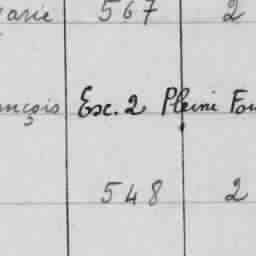 arie 567 2
nçois Esc. 2 Pleine Fou
548 2